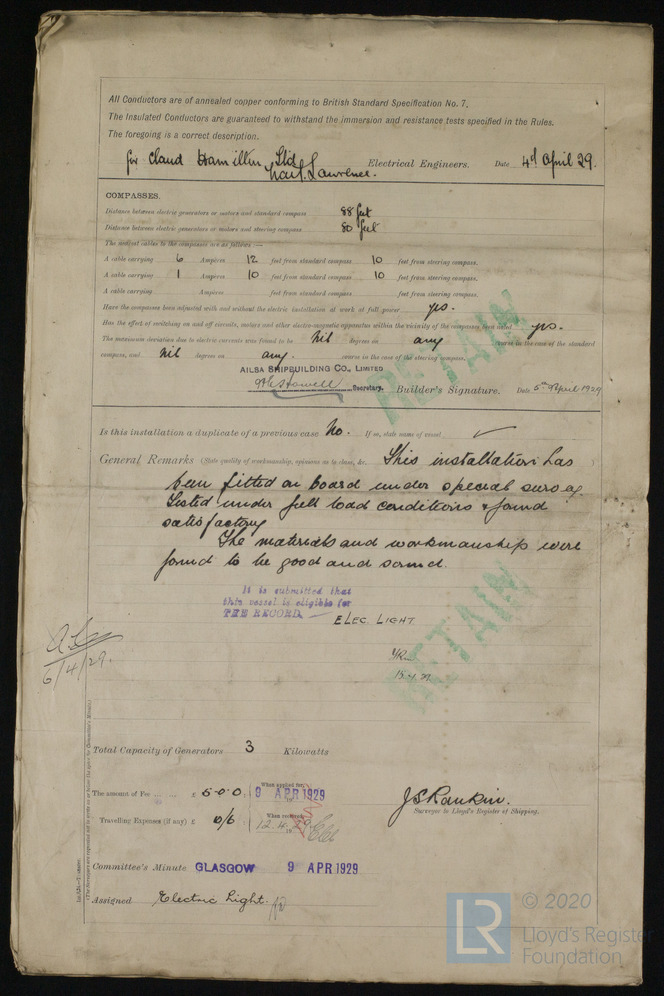 All Conductors are of annealed copper conforming to British Standard Specification No. 7.
The Insulated Conductors are guaranteed to withstand the immersion and resistance tests specified in the Rules.
The foregoing is a correct description.
for Claud Hamilton Ltd
Lawrence. Electrical Engineers. Date 4th April 29.
COMPASSES.
Distance between electric generators or motors and standard compass 88 feet
Distance between electric generators or motors and steering compass 80 feet
The nearest cables to the compasses are as follows:—
A cable carrying 6 Ampères 12 feet from standard compass 10 feet from steering compass.
A cable carrying 1 Ampères 10 feet from standard compass 10 feet from steering compass.
A cable carrying Ampères feet from standard compass feet from steering compass.
Have the compasses been adjusted with and without the electric installation at work at full power yes.
Has the effect of switching on and off circuits, motors and other electro-magnetic apparatus within the vicinity of the compasses been noted yes.
The maximum deviation due to electric currents was found to be Nil degrees on any course in the case of the standard
compass, and Nil degrees on any course in the case of the steering compass.
AILSA SHIPBUILDING CO., LIMITED
Secretary. Builder's Signature. Date 5th April 1929
RETAIN
Is this installation a duplicate of a previous case No. If so, state name of vessel
General Remarks (State quality of workmanship, opinions as to class, &c. This installation has
been fitted on board under special survey
tested under full load conditions & found
satisfactory
The materials and workmanship were
found to be good and sound.
It is submitted that
this vessel is eligible for
THE RECORD. — ELEC. LIGHT
RETAIN
6/4/29.
15.4.29
Total Capacity of Generators 3 Kilowatts
The amount of Fee ... ... £ 5-0-0 : When applied for, 9 APR 1929
Travelling Expenses (if any) £ 10/6 : When received, 12.4.29
J S Rankin.
Surveyor to Lloyd's Register of Shipping.
Committee's Minute GLASGOW 9 APR 1929
Assigned Electric Light.
LR
© 2020
Lloyd's Register
Foundation